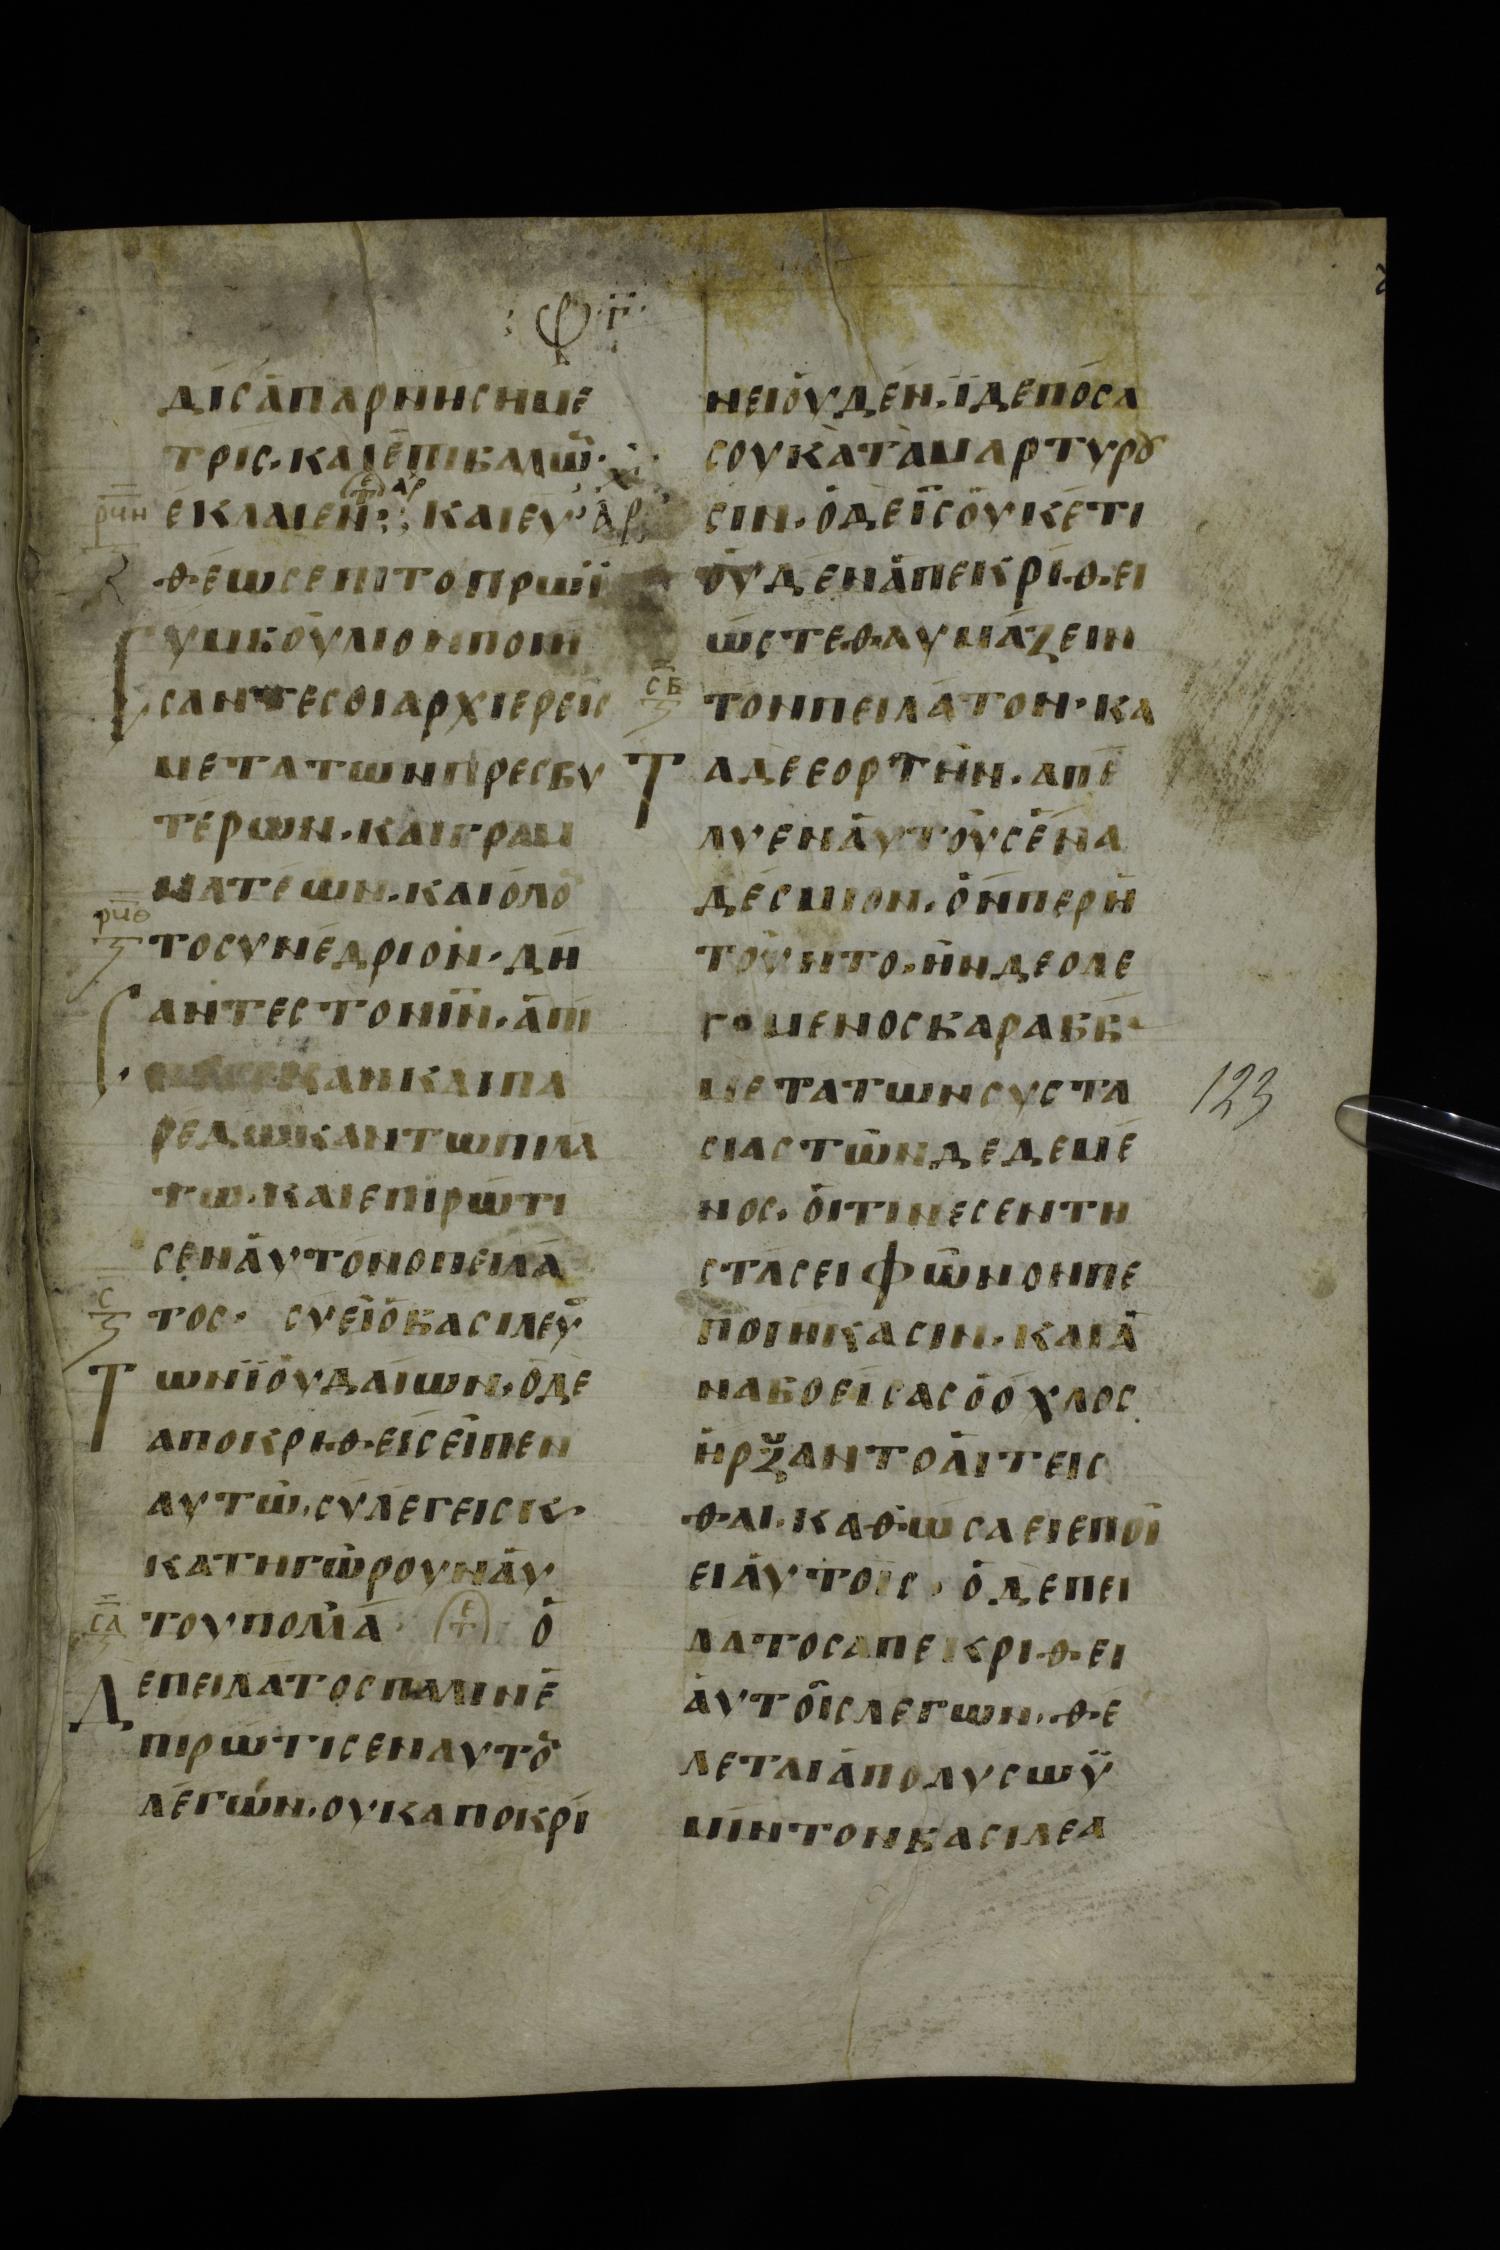 φ Γ
ΔΙΣΑΠΑΡΝΗΣΗΜΕ
ΤΡΙΣ· ΚΑΙΕΠΙΒΑΛΩ̅·
ΕΚΛΑΙΕΝ· ΚΑΙΕΥ ΑΡ
ΘΕΩΣΕΠΙΤΟΠΡΩΪ
ΣΥΜΒΟΥΛΙΟΝΠΟΙΗ
ΣΑΝΤΕΣΟΙΑΡΧΙΕΡΕΙΣ
ΜΕΤΑΤΩΝΠΡΕΣΒΥ
ΤΕΡΩΝ· ΚΑΙΓΡΑΜ
ΜΑΤΕΩΝ· ΚΑΙΟΛΟ̅
ΤΟΣΥΝΕΔΡΙΟΝ· ΔΗ
ΣΑΝΤΕΣΤΟΝΙ̅Ν̅· ΑΠΗ
ΚΑΝΚΑΙΠΑ
ΡΕΔΩΚΑΝΤΩΠΙΛΑ
ΤΩ· ΚΑΙΕΠΙΡΩΤΙ
ΣΕΝΑΥΤΟΝΟΠΕΙΛΑ
ΤΟΣ· ΣΥΕΙΟΒΑΣΙΛΕΥ
ΤΩΝΪΟΥΔΑΙΩΝ· ΟΔΕ
ΑΠΟΚΡΙΘΕΙΣΕΙΠΕΝ
ΑΥΤΩ· ΣΥΛΕΓΕΙΣΚ·
ΚΑΤΗΓΩΡΟΥΝΑΥ
ΤΟΥΠΟΛΛΑ· Ο
ΔΕΠΕΙΛΑΤΟΣΠΑΛΙΝΕ
ΠΙΡΩΤΙΣΕΝΑΥΤΟ̅
ΛΕΓΩΝ· ΟΥΚΑΠΟΚΡΙ
ΝΕΙΟΥΔΕΝ· ΪΔΕΠΟΣΑ
ΣΟΥΚΑΤΑΜΑΡΤΥΡȢ
ΣΙΝ· ΟΔΕΙ̅Σ̅ΟΥΚΕΤΙ
ΟΥΔΕΝΑΠΕΚΡΙΘΕΙ
ΩΣΤΕΘΑΥΜΑΖΕΙΝ
ΤΟΝΠΕΙΛΑΤΟΝ· ΚΑ
ΤΑΔΕΕΟΡΤΗΝ· ΑΠΕ
ΛΥΕΝΑΥΤΟΥΣΕΝΑ
ΔΕΣΜΙΟΝ· ΟΝΠΕΡΗ
ΤΟΥΝΤΟ· ΗΝΔΕΟΛΕ
ΓΟΜΕΝΟΣΒΑΡΑΒΒ·
ΜΕΤΑΤΩΝΣΥΣΤΑ
ΣΙΑΣΤΩΝΔΕΔΕΜΕ
ΝΟΣ· ΟΙΤΙΝΕΣΕΝΤΗ
ΣΤΑΣΕΙΦΩΝΟΝΠΕ
ΠΟΙΗΚΑΣΙΝ· ΚΑΙΑ
ΝΑΒΟΕΙΣΑΣΟΟΧΛΟΣ
ΗΡΞΑΝΤΟΑΙΤΕΙΣ
ΘΑΙ· ΚΑΘΩΣΑΕΙΕΠΟΙ
ΕΙΑΥΤΟΙΣ· ΟΔΕΠΕΙ
ΛΑΤΟΣΑΠΕΚΡΙΘΕΙ
ΑΥΤΟΙΣΛΕΓΩΝ· ΘΕ
ΛΕΤΑΙΑΠΟΛΥΣΩΫ
ΜΙΝΤΟΝΒΑΣΙΛΕΑ
ΡϘΗ
ΡϘΘ
Σ
ΣΑ
ΣΒ
123